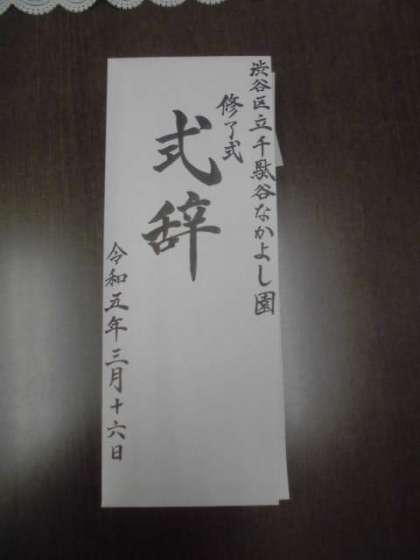 渋谷区立千駄谷なかよし園
修了式
式辞
令和五年三月十六日